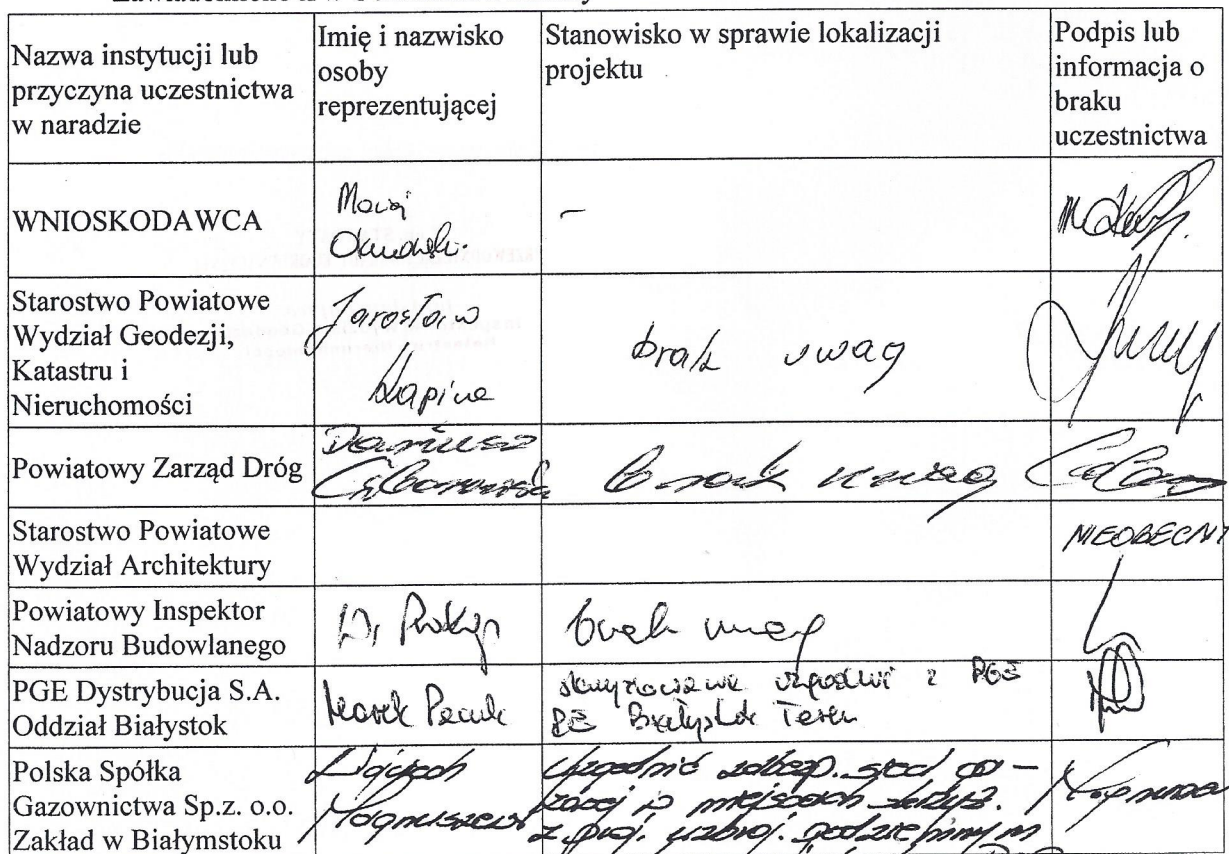 Nazwa instytucji lub
przyczyna uczestnictwa
w naradzie
Imię i nazwisko
osoby
reprezentującej
Stanowisko w sprawie lokalizacji
projektu
Podpis lub
informacja o
braku
uczestnictwa
WNIOSKODAWCA
Maciej
-
Starostwo Powiatowe
Wydział Geodezji,
Katastru i
Nieruchomości
Jarosław
Łapina
brak uwag
Powiatowy Zarząd Dróg
Dariusz
brak uwag
Starostwo Powiatowe
Wydział Architektury
NIEOBECNY
Powiatowy Inspektor
Nadzoru Budowlanego
brak uwag
PGE Dystrybucja S.A.
Oddział Białystok
Marek
skrzyżowanie uzgodnić z PGE
RE Białystok Teren
Polska Spółka
Gazownictwa Sp.z. o.o.
Zakład w Białymstoku
Wojciech
Uzgodnić zabezp. sieci ga-
zowej w miejscach skrzyż.
z proj. uzbroj. podziemnym